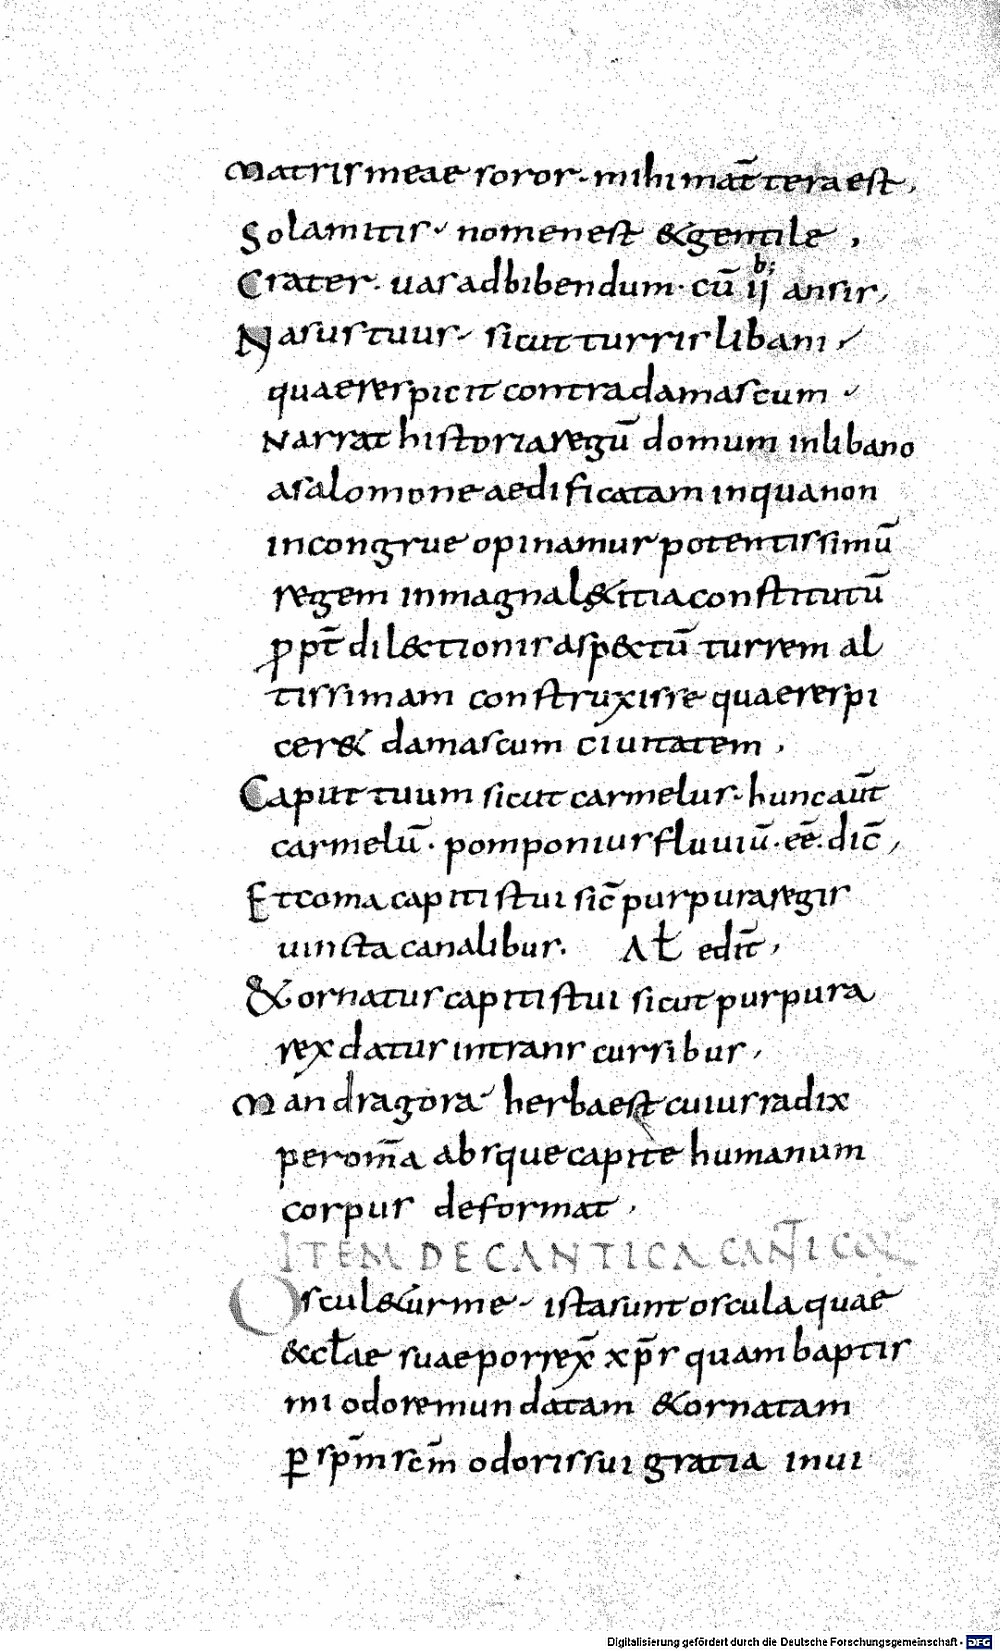 Matris meae soror · mihi mat̄ tera est,
Solamitis · nomen est & gentile,
Crater · uas ad bibendum · cū ij b; ansis,
Nasus tuus · sicut turris libani ·
quae respicit contra damascum ·
Narrat historia regū domum in libano
a salomone aedificatam in qua non
incongrue opinamur potentissimū
regem in magna l&itia constitutū
ꝓpt̄ dil&ctionis asp&ctū turrem al
tissimam construxisse quae respi
cer& damascum ciuitatem,
Caput tuum sicut carmelus · hunc aūt
carmelū · pomponius fluuiū · eē · dic̄,
Et coma capitis tui sic̄ purpura regis
uincta canalibus. Aƚ edit̄,
& ornatus capitis tui sicut purpura
rex datur intrans curribus,
Mandragora herba est cuius radix
per om̄a absque capite humanum
corpus deformat,
ITEM DE CANTICA CAN̄TICOR̄
Oscul&ur me · ista sunt oscula quae
&cƚae suae porrex̄ xp̄s quam baptis
mi odore mundatam & ornatam
ꝑ sp̄m sc̄m odoris sui gratia inui
Digitalisierung gefördert durch die Deutsche Forschungsgemeinschaft · DFG